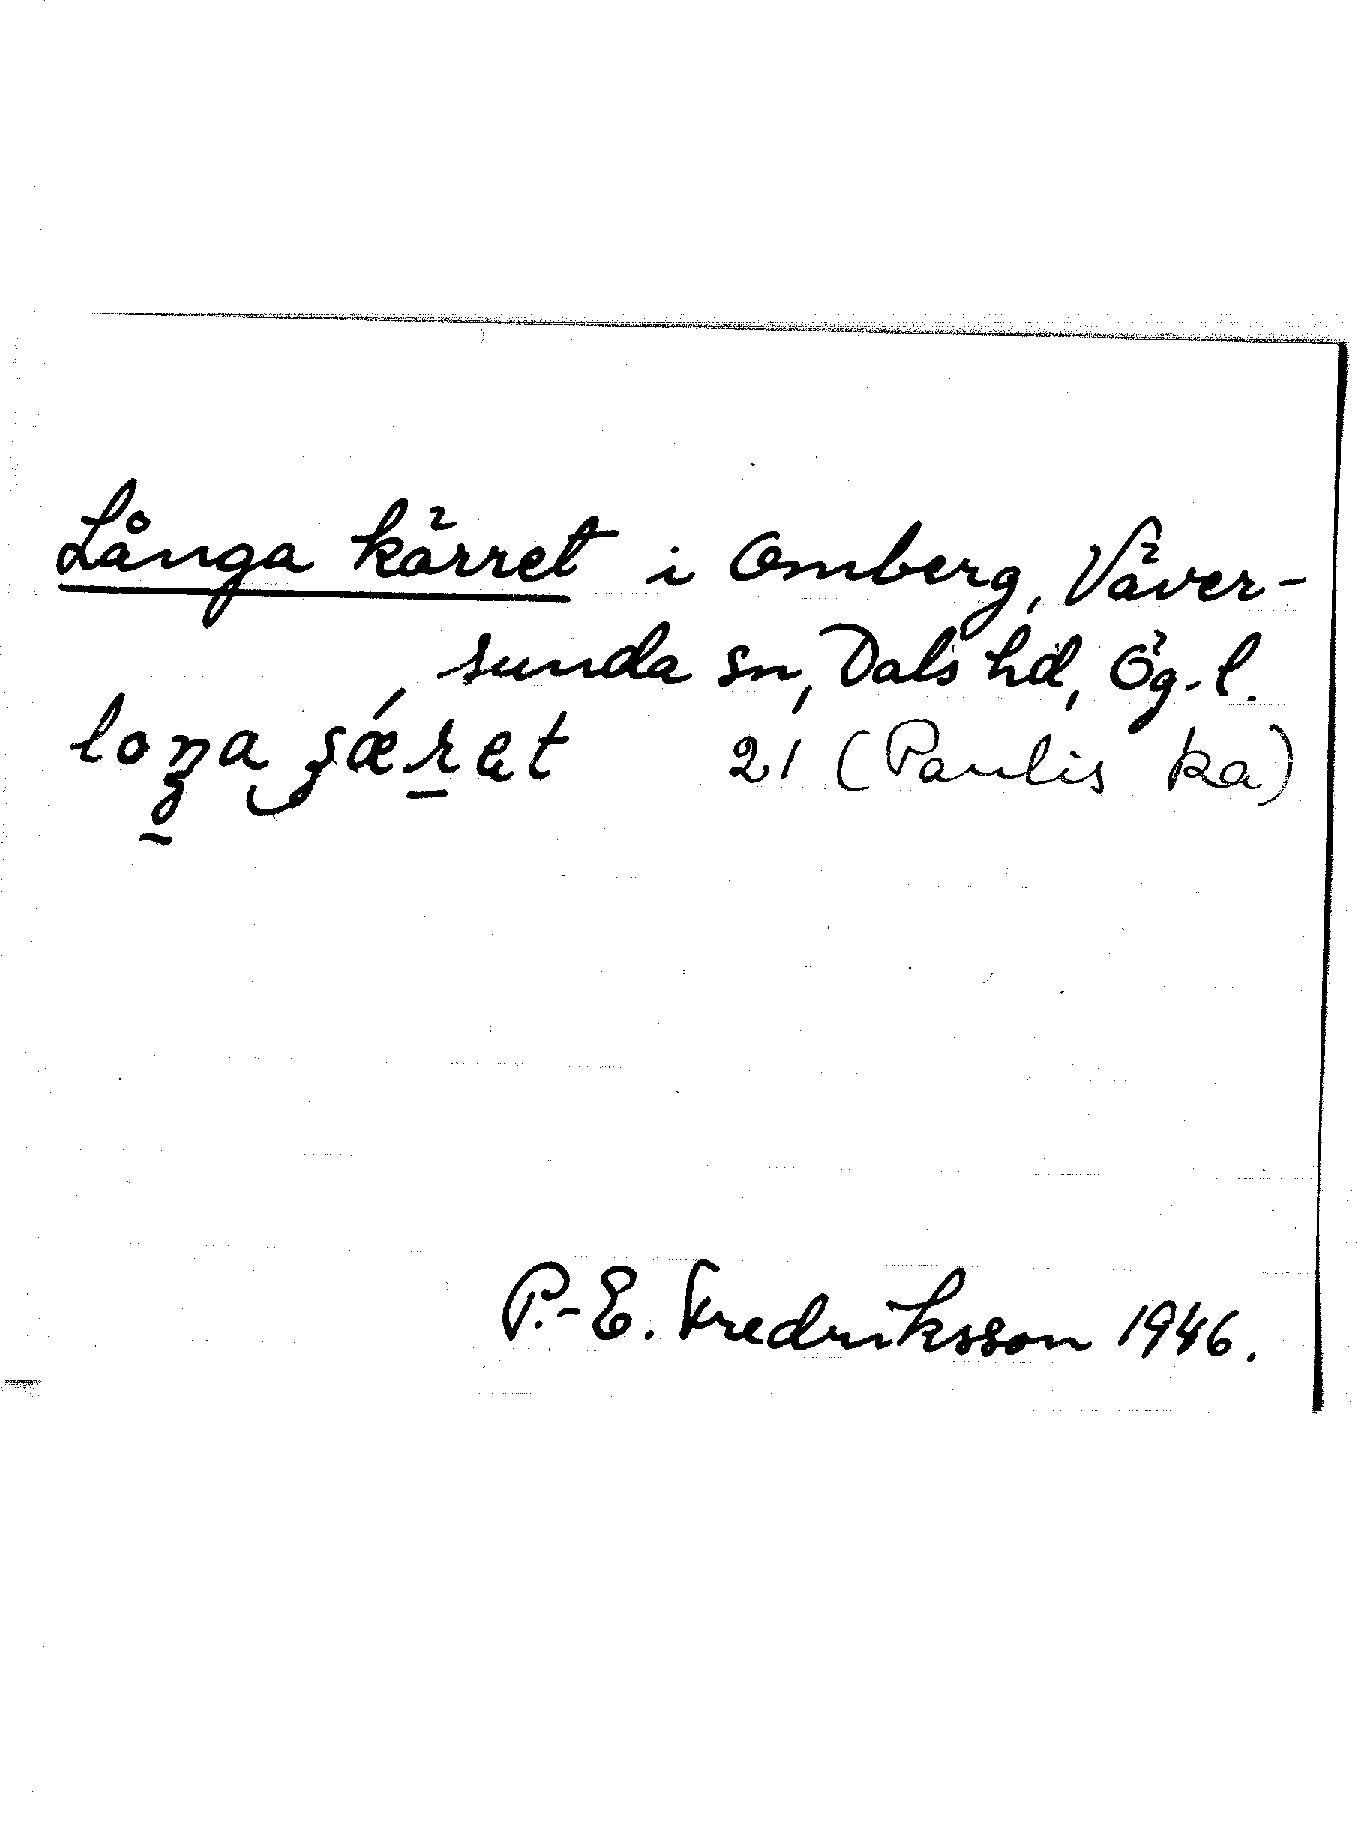 Långa kärret i Omberg, Väver-
sunda sn, Dals hd, Ög. l.
21 (Paulis ka)
P.-E. Fredriksson 1946.